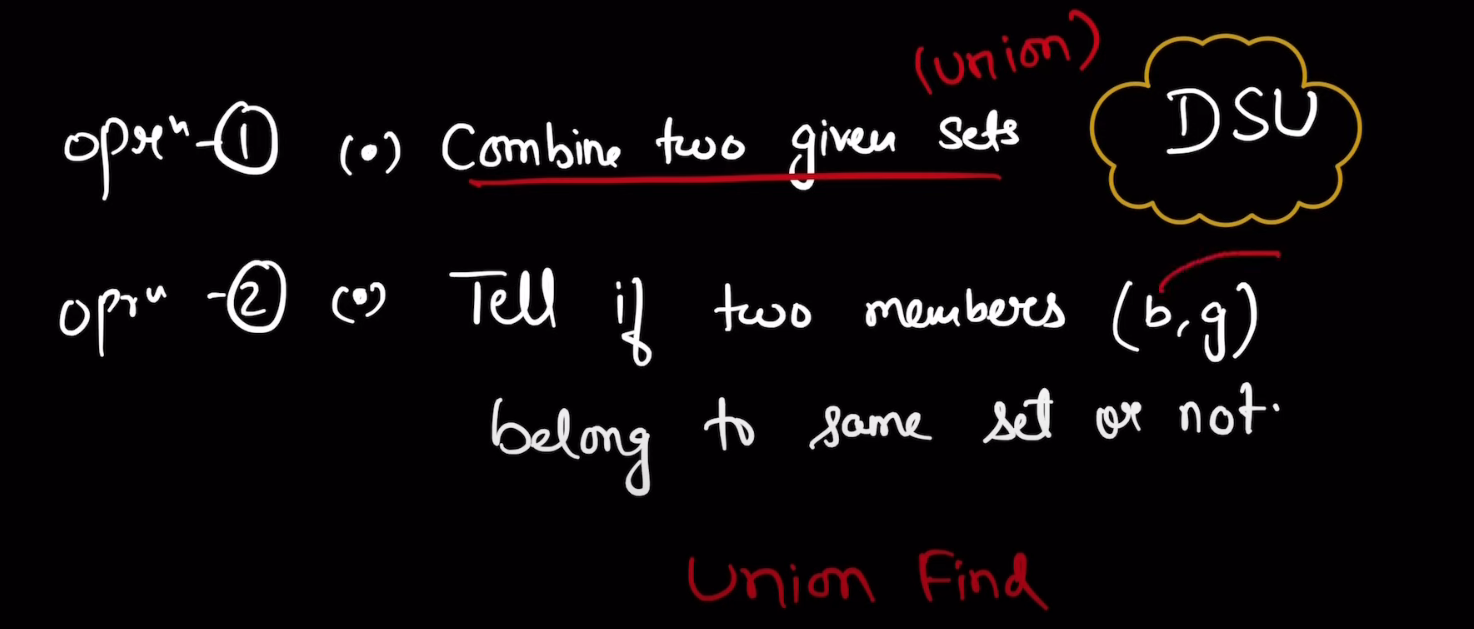 (Union)
DSU
oprⁿ-① (•) Combine two given sets
oprⁿ -② (•) Tell if two members (b,g)
belong to same set or not.
Union Find